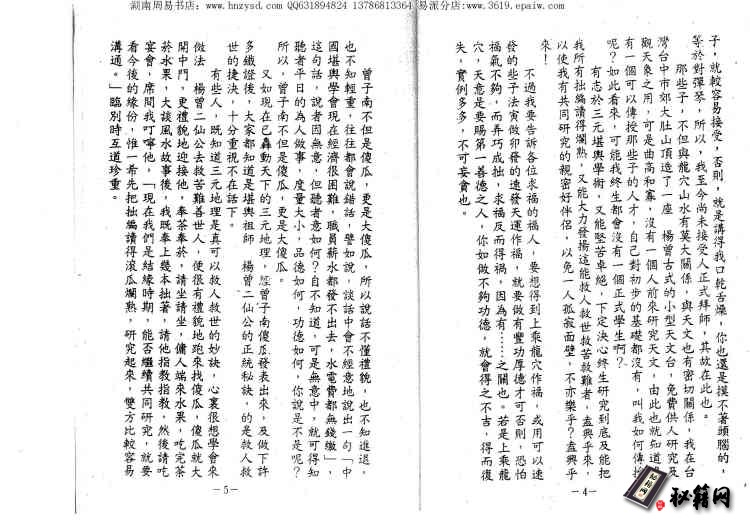 湖南周易书店：www.hnzysd.com QQ631894824 13786813364 易派分店:www.3619.epaiw.com
子，就較容易接受，否則，就是講得我口乾舌燥，你也還是摸不著頭腦的，
等於對彈琴，所以，我至今尚未接受人正式拜師，其故在此也。
那些子，不但與龍穴山水有莫大關係，與天文也有密切關係，我在台
灣台中市郊大肚山頂造了一座 楊曾古式的小型天文台，免費供人研究及
觀天象之用，可是曲高和寡，沒有一個人前來研究天文，由此也就知道
有一個可以傳授那些子的人才，自己對初步的基礎都沒有，叫我如何傳授
呢？如此看來，可能我終生都會沒有一個正式學生啊？
有志於三元堪輿學術，又能堅苦卓絕，下定決心終生研究到底及能把
我所有拙編讀得爛熟，又能大力發揚這能救人救世救苦救難者，盍興乎來，
以使我有共同研究的親密好伴侶，以免一人孤寂面壁，不亦樂乎？盍興乎
來！
不過我要告訴各位求福的福人，要想得到上乘龍穴作福，或用可以速
發的些子法寅做卯發的速發天運作福，就要做有豐功厚德才可否則，恐怕
福氣不夠，而弄巧成拙，求福反而得禍，因為有……之關也。若是上乘龍
穴，天意是要賜第一善德之人，你如做不夠功德，就會得之不吉，得而復
失，實例多多，不可妄貪也。
—4—
曾子南不但是傻瓜，更是大傻瓜，所以說話不懂禮貌，也不知進退，
也不知輕重，往往都會說錯話，譬如說，談話中會不經意地說出一句「中
國堪輿學會現在經濟很困難，職員薪水都發不出去，水電費都無錢繳」，
這句話，說者因無意，但聽者意如何？自不知道，可是無意中，就可得知
聽者平日的為人做事，度量大小，品德如何，功德如何，你說是不是呢？
所以，曾子南不但是傻瓜，更是大傻瓜。
又如現在已轟動天下的三元地理，經曾子南傻瓜發表出來，及做下許
多鐵證後，大家都知道是堪輿祖師 楊曾二仙公的正統秘訣，的是救人救
世的捷決，十分重視不在話下。
有些人，既知道三元地理是真可以救人救世的妙訣，心裏很想學會來
做法 楊曾二仙公去救苦難善世人，便很有禮貌地跑來找傻瓜，傻瓜就大
開中門，更禮貌地迎接他，奉茶奉菸，請坐請坐，傭人端來水果，吃完茶
菸水果，大談風水故事後，我既奉上幾本拙著，請他指教指教，然後請吃
宴會，席間我叮嚀他，「現在我們是結緣時期，能否繼續共同研究，就要
看今後的緣份，惟一希先把拙編讀得滾瓜爛熟，研究起來，雙方比較容易
溝通。」臨別時互道珍重。
—5—
秘籍网